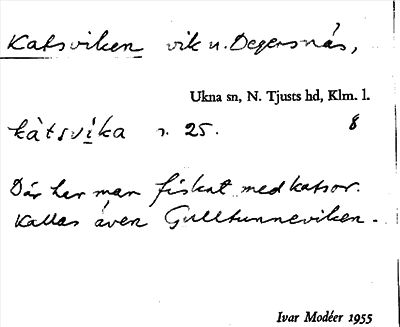 Katsviken vik u. Degersnäs,
Ukna sn, N. Tjusts hd, Klm. l.
kàtsvíka r. 25. 8
Där har man fiskat med katsor.
Kallas även Gulltunneviken.
Ivar Modéer 1955